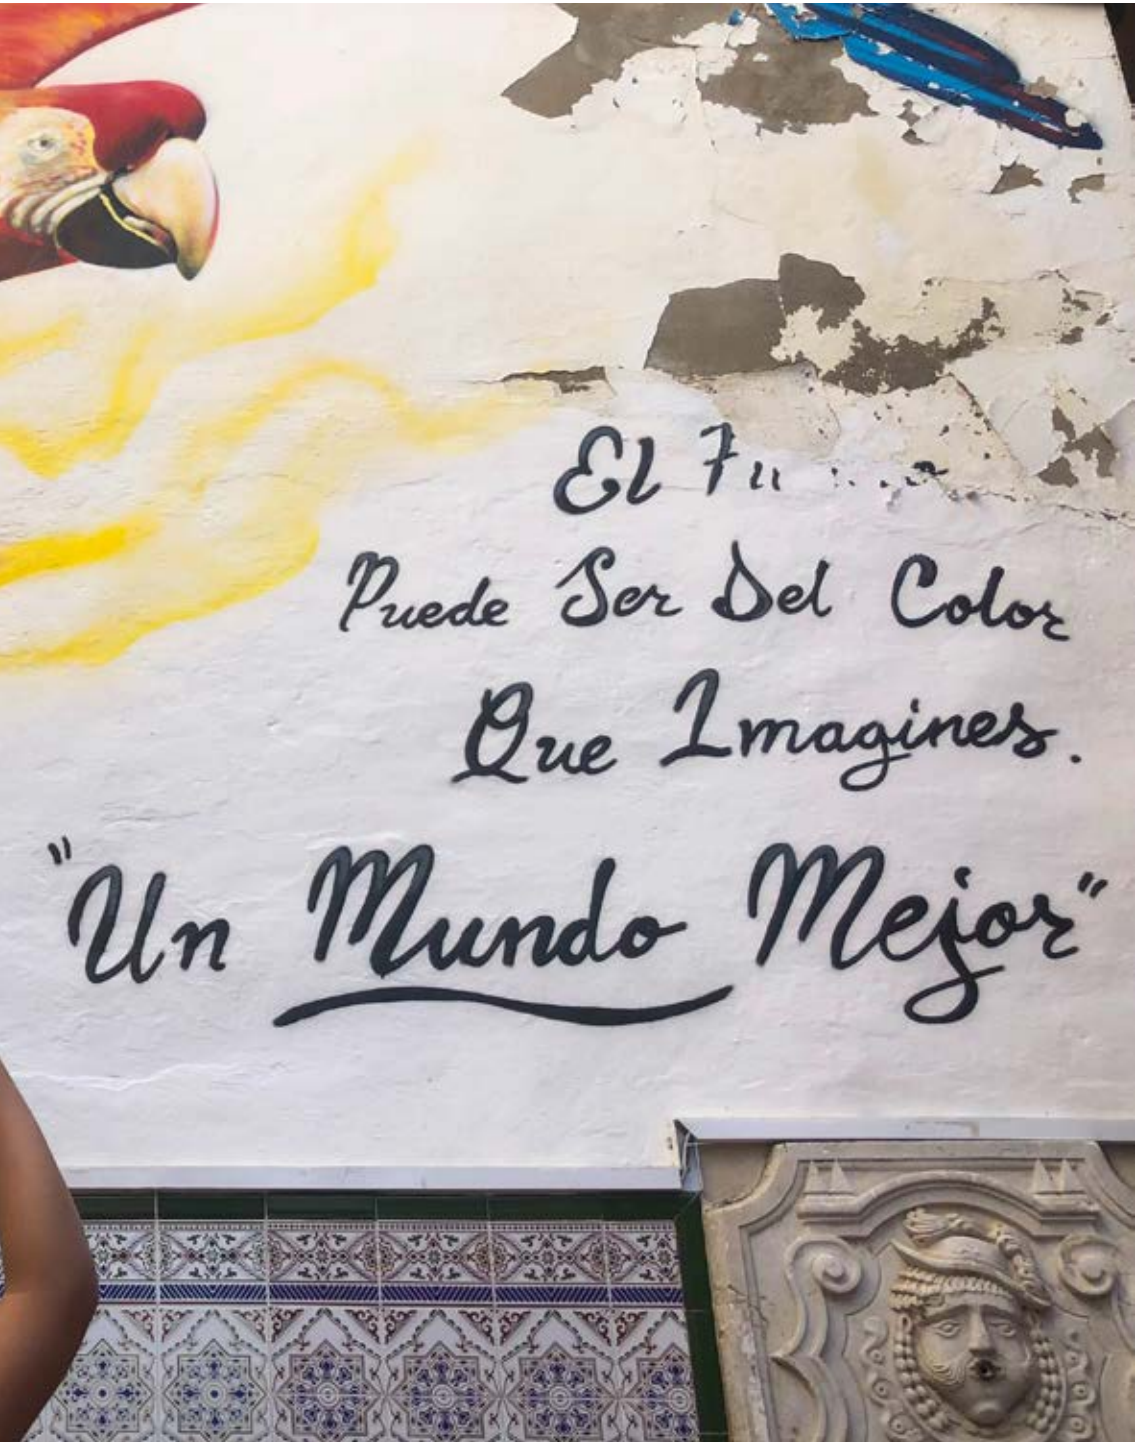 El
Puede Ser Del Color
Que Imagines.
"Un Mundo Mejor"